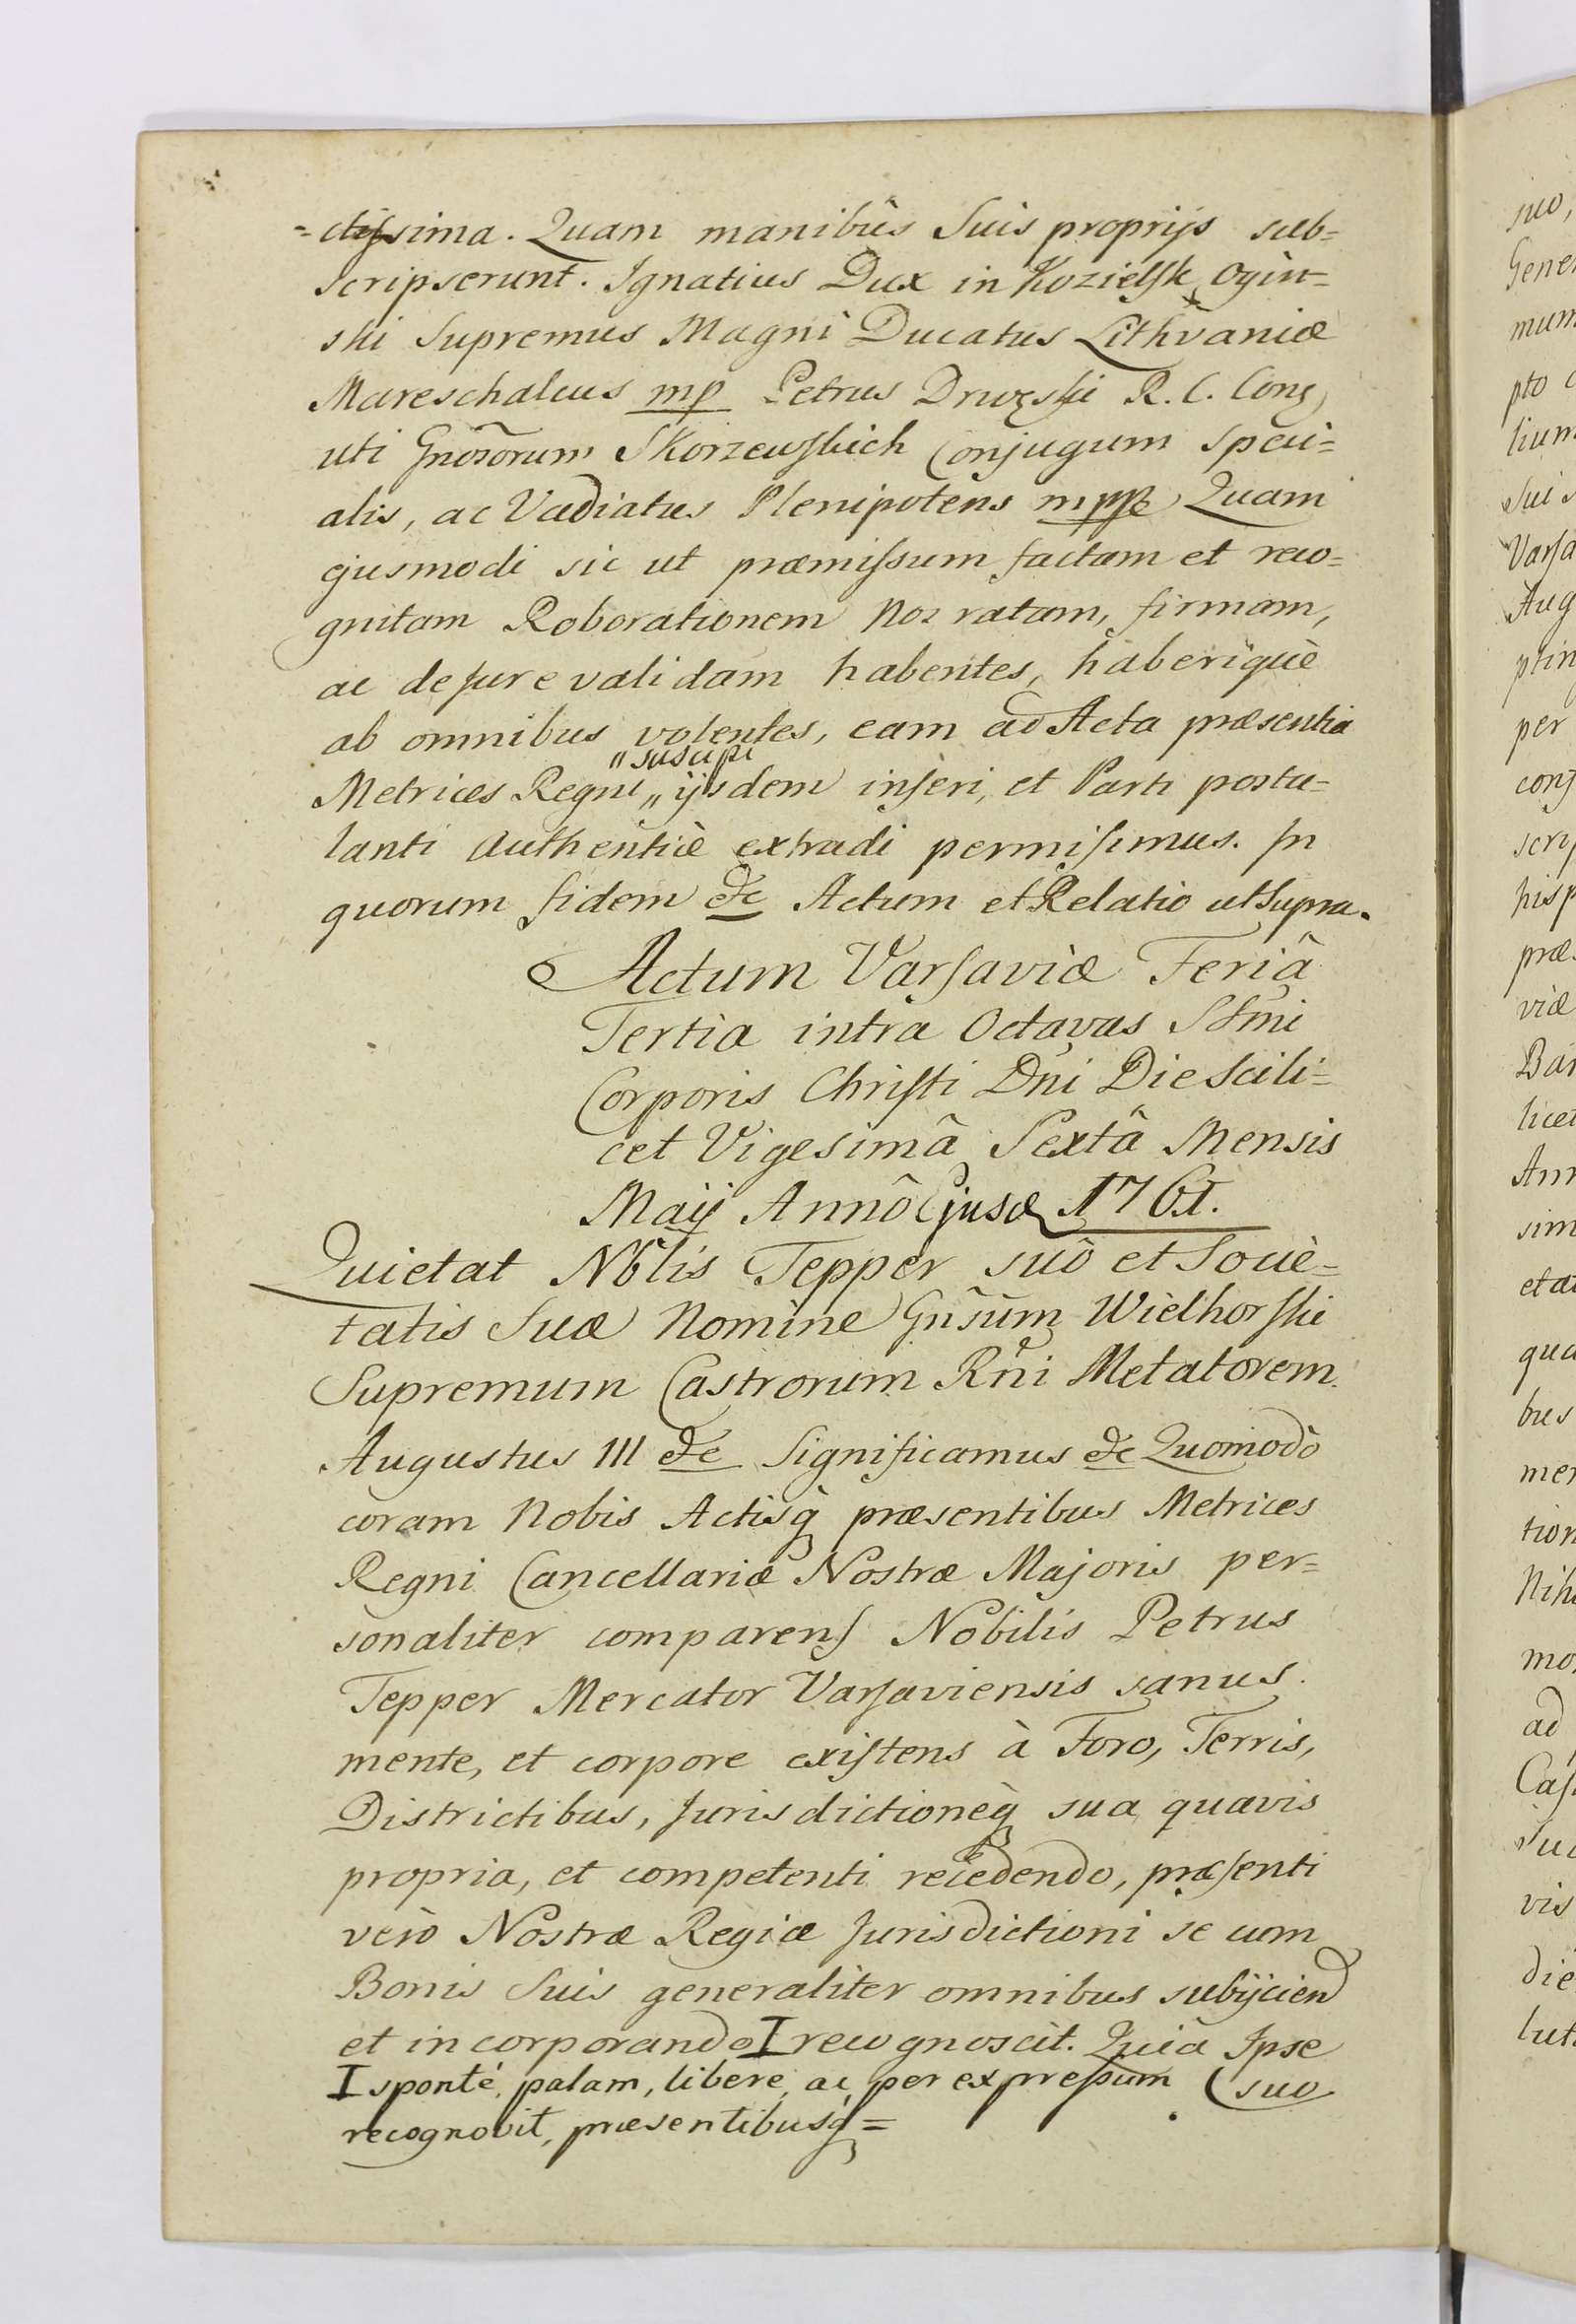 =ctissima. Quam manibûs Suis proprijs sub=
scripserunt. Ignatius Dux in Kozielsk Ogin=
ski Supremus Magni Ducatus Lithvaniæ
Mareschalcus mp Petrus Drwęski R. C. Cons
uti Gnosorum Skorzewskich Conjugum Speci=
alis, ac Vadiatus Plenipotens mpp Quam
ejusmodi sic ut præmissum factam et reco=
gnitam Roborationem Nos ratam, firmam,
ac de Jure validam habentes, haberiquè
ab omnibus volentes, eam ad Acta præsentia
"suscipi
Metrices Regni " ijsdem inseri, et Parti postu=
lanti Authenticè extradi permisimus. In
quorum fidem etc Actum et Relatio ut Supra.
Actum Varsaviæ Feriâ
Tertia intra Octavas SSmi
Corporis Christi Dni Die Scili=
cet Vigesimâ Sextâ Mensis
Maij Annô Ejusd 1761.
Quietat Nblis Tepper suô et Socie=
tatis Suæ Nomine Gnsum Wielhorski
Supremum Castrorum Rni Metatorem.
Augustus III etc Significamus etc Quomodò
coram Nobis Actisq̀ præsentibus Metrices
Regni Cancellariæ Nostræ Majoris per=
sonaliter comparens Nobilis Petrus
Tepper Mercator Varsaviensis sanus
mente, et corpore existens à Foro, Terris,
Districtibus, Jurisdictioneq̀ sua quavis
propria, et competenti recedendo, præsenti
verò Nostræ Regiæ Jurisdictioni se cum
Bonis Suis generaliter omnibus subijciend
et incorporando I recognoscit. Quia Ipse
I sponté, palam, libere, ac per expressum (suo
recognovit, præsentibusq̀ =
suo,
Gener
mum
pto
lium
Suis
Varsa
Aug
ptin
per
cons
scri
hisp
præ
viæ
Bar
licet
Ann
sim
et a
qua
bus
mer
tion
Nih
mo
ad
Cas
Su
vis
die
lut